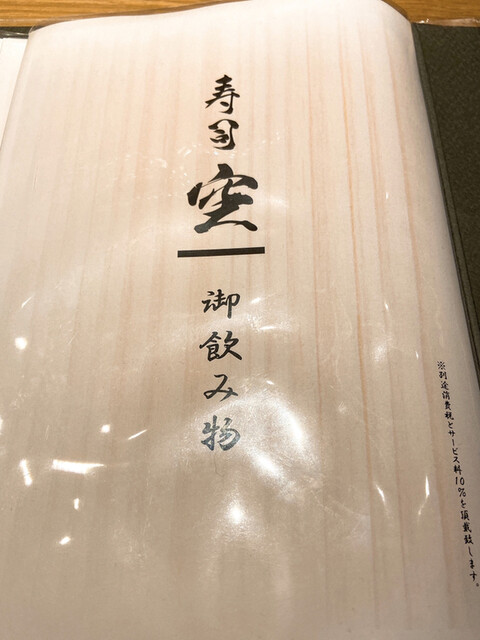 寿司
空
御飲み物
※別途消費税とサービス料10%を頂戴致します。